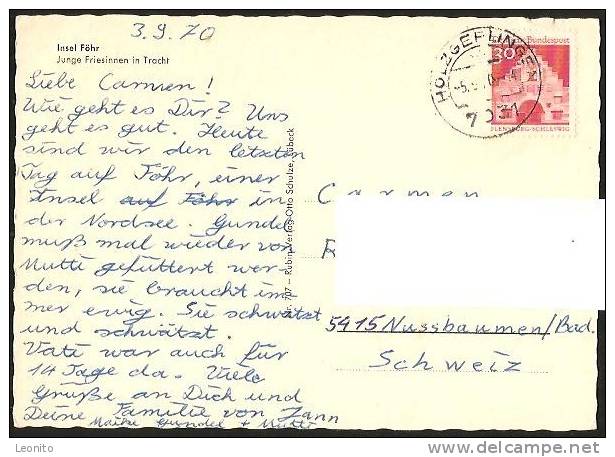 3.9.70
Insel Föhr
Junge Friesinnen in Tracht
Liebe Carmen!
Wie geht es Dir? Uns
geht es gut. Heute
sind wir den letzten
Tag auf Föhr, einer
Insel auf Föhr in
der Nordsee. Gundel
muß mal wieder von
Mutti gefüttert wer-
den, sie braucht im-
mer ewig. Sie schwätzt
und schwätzt.
Vati war auch für
14 Tage da. Viele
Grüße an Dich und
Deine Familie von Zann
Maike Gundel + Mutti
Nr. 707 – Rubin-Verlag Otto Schulze, Lübeck
HOLZGERLINGEN
7031
Bundespost
30
FLENSBURG-SCHLESWIG
Carmen
R
5415 Nussbaumen/Bad.
Schweiz
Leonito
www.delcampe.net